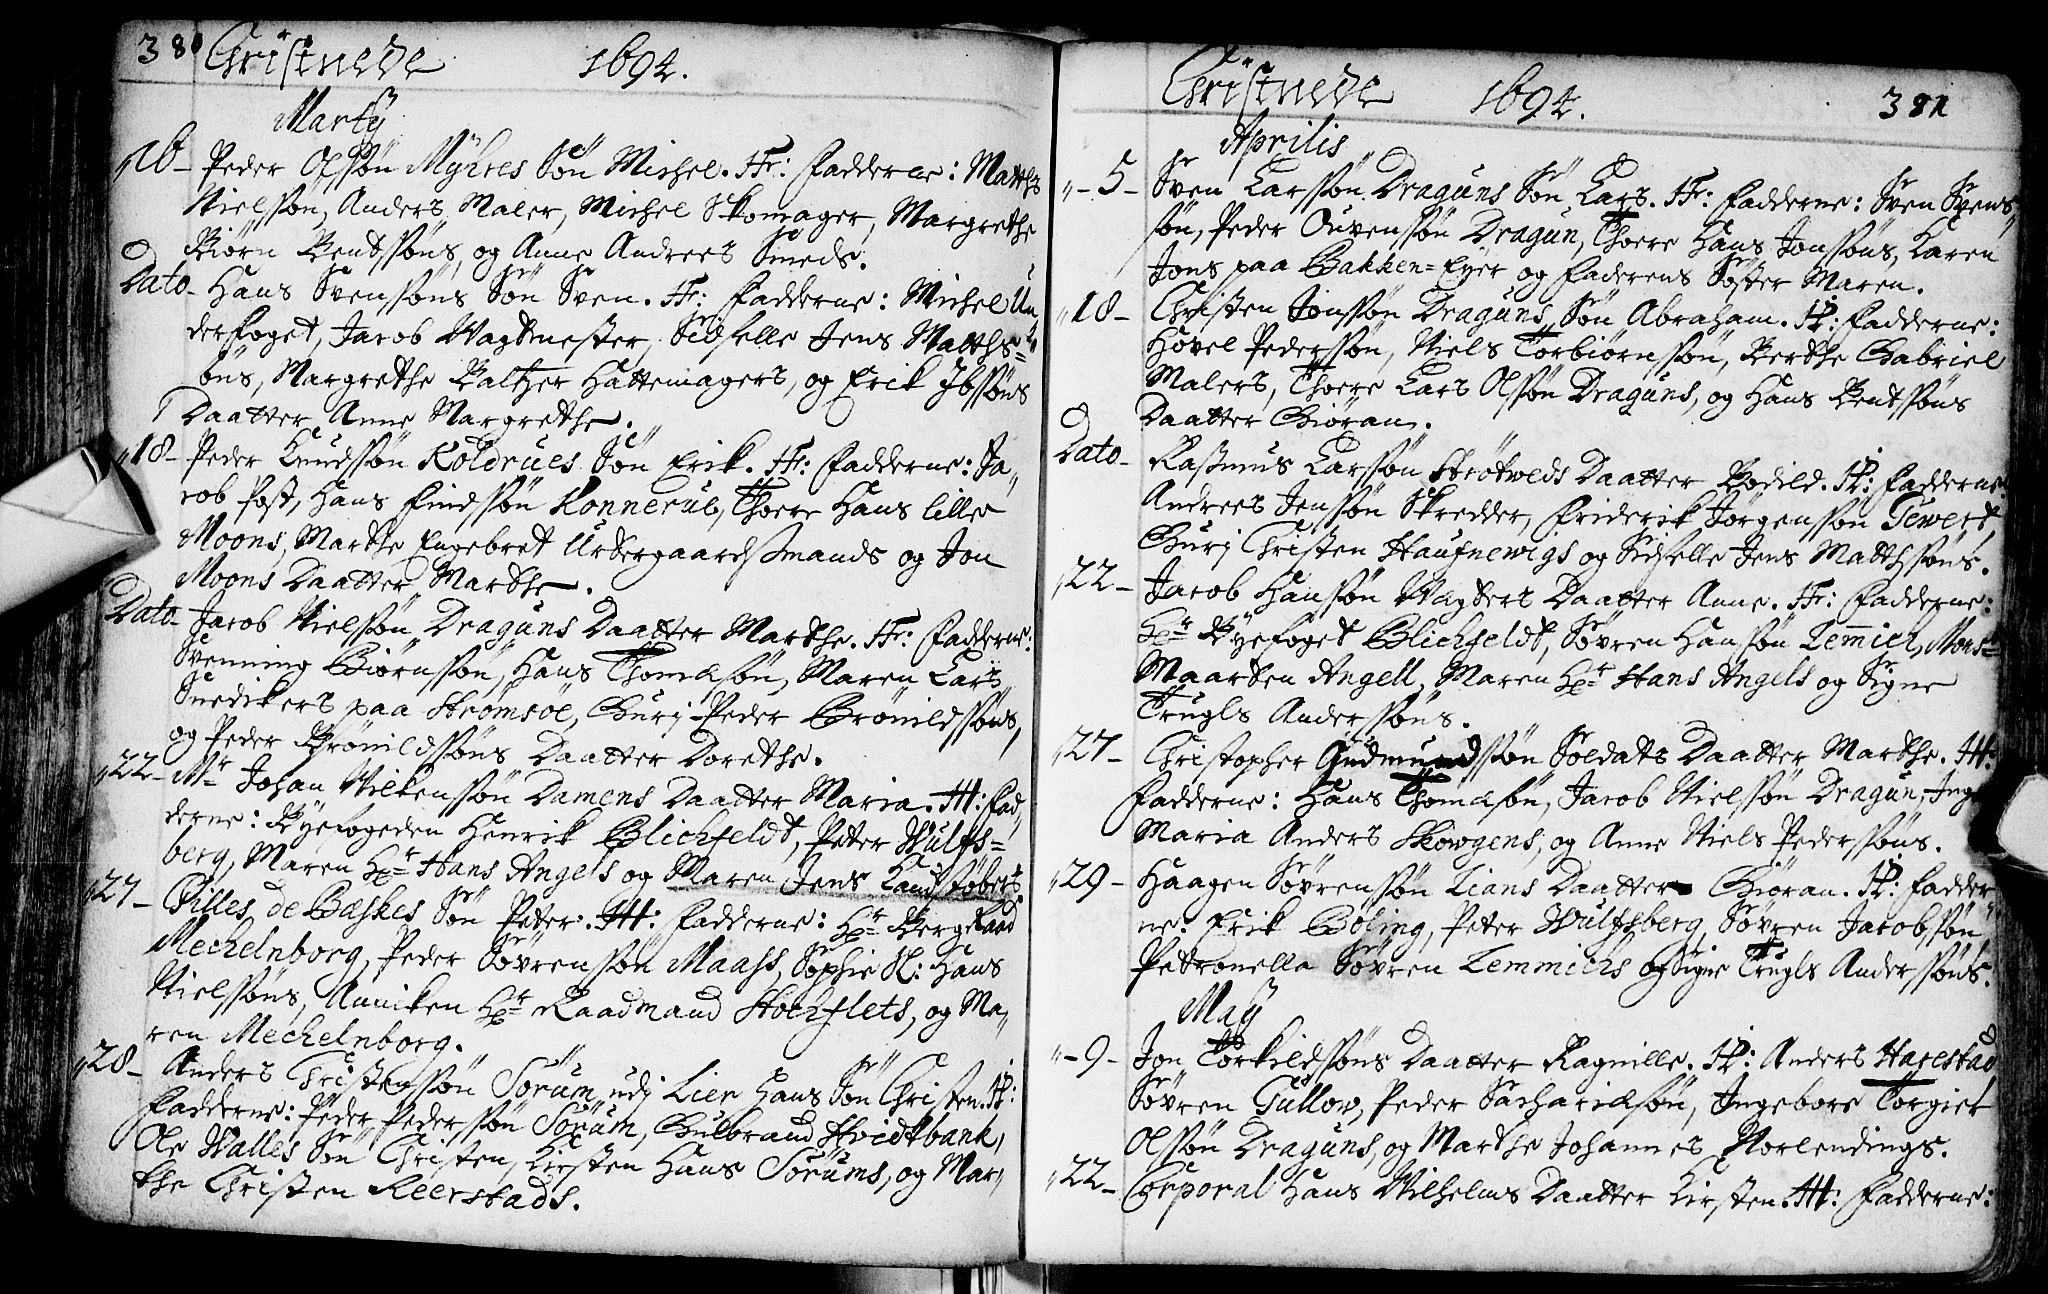 380 Christnede 1694.
Martij
"16- Peder Olssøn Myhres Søn Michel. Fr: Fadderne: Matths
Nielssøn, Anders Maler, Michel Skomager, Margrethe
Biørn Bentssøns, og Anne Andrees Smeds.
Dato- Hans Svenssøns Søn Sven. Fr: Fadderne: Michel Un
derfoget, Jacob Wagtmester, Sidselle Jens Matths-
søns, Margrethe Baltzer Hattemagers, og Erik Ibssøns
Daatter Anne Margrethe.
"18- Peder Knudssøn Koldrues Søn Erik. Fr: Fadderne: Ja-
cob Post, Hans Findssøn Konnerud, Thore Hans lille
Moons, Marthe Engebret Urdergaardsmands og Jon
Moons Daatter Marthe.
Dato- Jacob Nielssøn Draguns Daatter Marthe. Fr: Fadderne:
Svenning Biørnssøn, Hans Thomæssøn, Maren Lars
Snedikers paa Strømsøe, Gurj Peder Brønildssøns,
og Peder Brønildssøns Daatter Dorethe.
"22- Mr Johan Wilkenssøn Damens Daatter Maria. H: Fad-
derne: Byefogeden Henrik Blichfeldt, Peter Wulfs-
berg, Maren Hr Hans Angels og Maren Jens Handskøbers.
"27- Gilles de Bæskes Søn Peter. H: Fadderne: Hr BergRaad
Mechelnborg, Peder Søvrenssøn Maass, Sophie Sl: Hans
Nielssøns, Anniken Hr Raadmand Stochflets, og Ma-
ren Mechelnborg.
"28- Anders Christenssøn Sørum udj Lier Hans Søn Christen. P:
Fadderne: Peder Pederssøn Sørum, Gulbrand Hvidtbank,
Ole Walles Søn Christen, Kirsten Hans Sørums, og Mar-
the Christen Reerstads.
Christnede 1694. 381
Aprilis
"-5- Sven Larssøn Draguns Søn Lars. Fr: Fadderne: Sven Svens-
søn, Peder Ouvenssøn Dragun, Thore Hans Jonssøns, Karen
Jons paa Bakken-Eyer og Faderens Søster Maren.
"18- Christen Jonssøn Draguns Søn Abraham. P: Fadderne:
Høvel Pederssøn, Niels Torbiørnssøn, Berthe Gabriel
Malers, Thore Lars Olssøn Draguns, og Hans Bentssøns
Daatter Giøran.
Dato- Rasmus Larssøn Strøtweds Daatter Bodild. P: Fadderne:
Andrees Jenssøn Skredder, Friderik Jørgenssøn Gewert,
Gurj Christen Haufnewigs og Sidselle Jens Matthssøns.
"22- Jacob Hanssøn Vægters Daatter Anne. Fr: Fadderne:
Hr Byefoget Blichfeldt, Søvren Hanssøn Lemmich, Mons-
Maarten Angell, Maren Hr Hans Angels og Signe
Trugls Anderssøns.
"27- Christopher Gudmundssøn Soldats Daatter Marthe. H:
Fadderne: Hans Thomæssøn, Jacob Nielssøn Dragun, Inge
Maria Anders Skowgens, og Anne Niels Pederssøns.
"29- Haagen Søvrenssøn Lians Daatter Giøran. P: Fadder-
ne: Erik Böling, Peter Wulfsberg, Søvren Jacobssøn
Petronella Søvren Lemmichs og Signe Trugls Anderssøns.
May
"-9- Jon Torkildssøns Daatter Ragnille. P: Anders Harestad
Søvren Gullow, Peder Sachariæssøn, Ingebore Torgier
Olssøn Draguns, og Marthe Johannes Norlendings.
"22- Corporal Hans Wilhelms Daatter Kirsten. H: Fadderne: